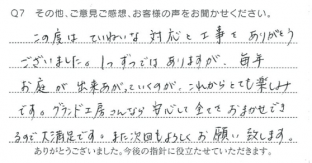 Q7 その他、ご意見ご感想、お客様の声をお聞かせください。
この度は ていねいな 対応と 工事を ありがとう
ございました。1つずつでは ありますが、毎年
お庭が 出来あがっていくのが、これからとても楽しみ
です。グランド工房さんなら 安心して 全てを おまかせでき
るので大満足です。また次回もよろしく お願い致します。
ありがとうございました。今後の指針に役立たせていただきます。